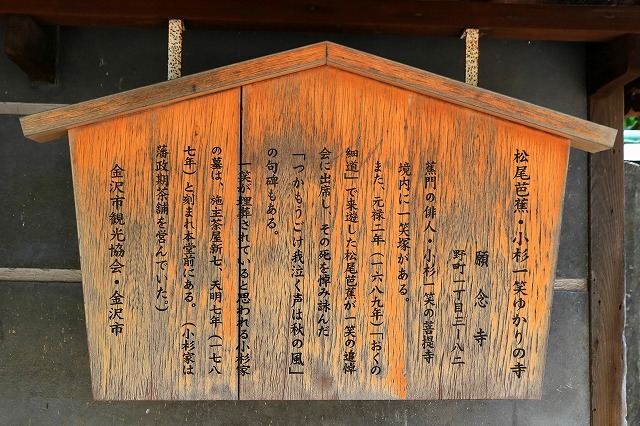 松尾芭蕉・小杉一笑ゆかりの寺
願念寺
野町一丁目三-八二
蕉門の俳人・小杉一笑の菩提寺
境内に一笑塚がある。
また、元禄二年(一六八九年)「おくの
細道」で来遊した松尾芭蕉が一笑の追悼
会に出席し、その死を悼み詠んだ
「つかもうごけ我泣く声は秋の風」
の句碑もある。
一笑が埋葬されていると思われる小杉家
の墓は、施主茶屋新七、天明七年(一七八
七年)と刻まれ本堂前にある。(小杉家は
藩政期茶舗を営んでいた。)
金沢市観光協会・金沢市